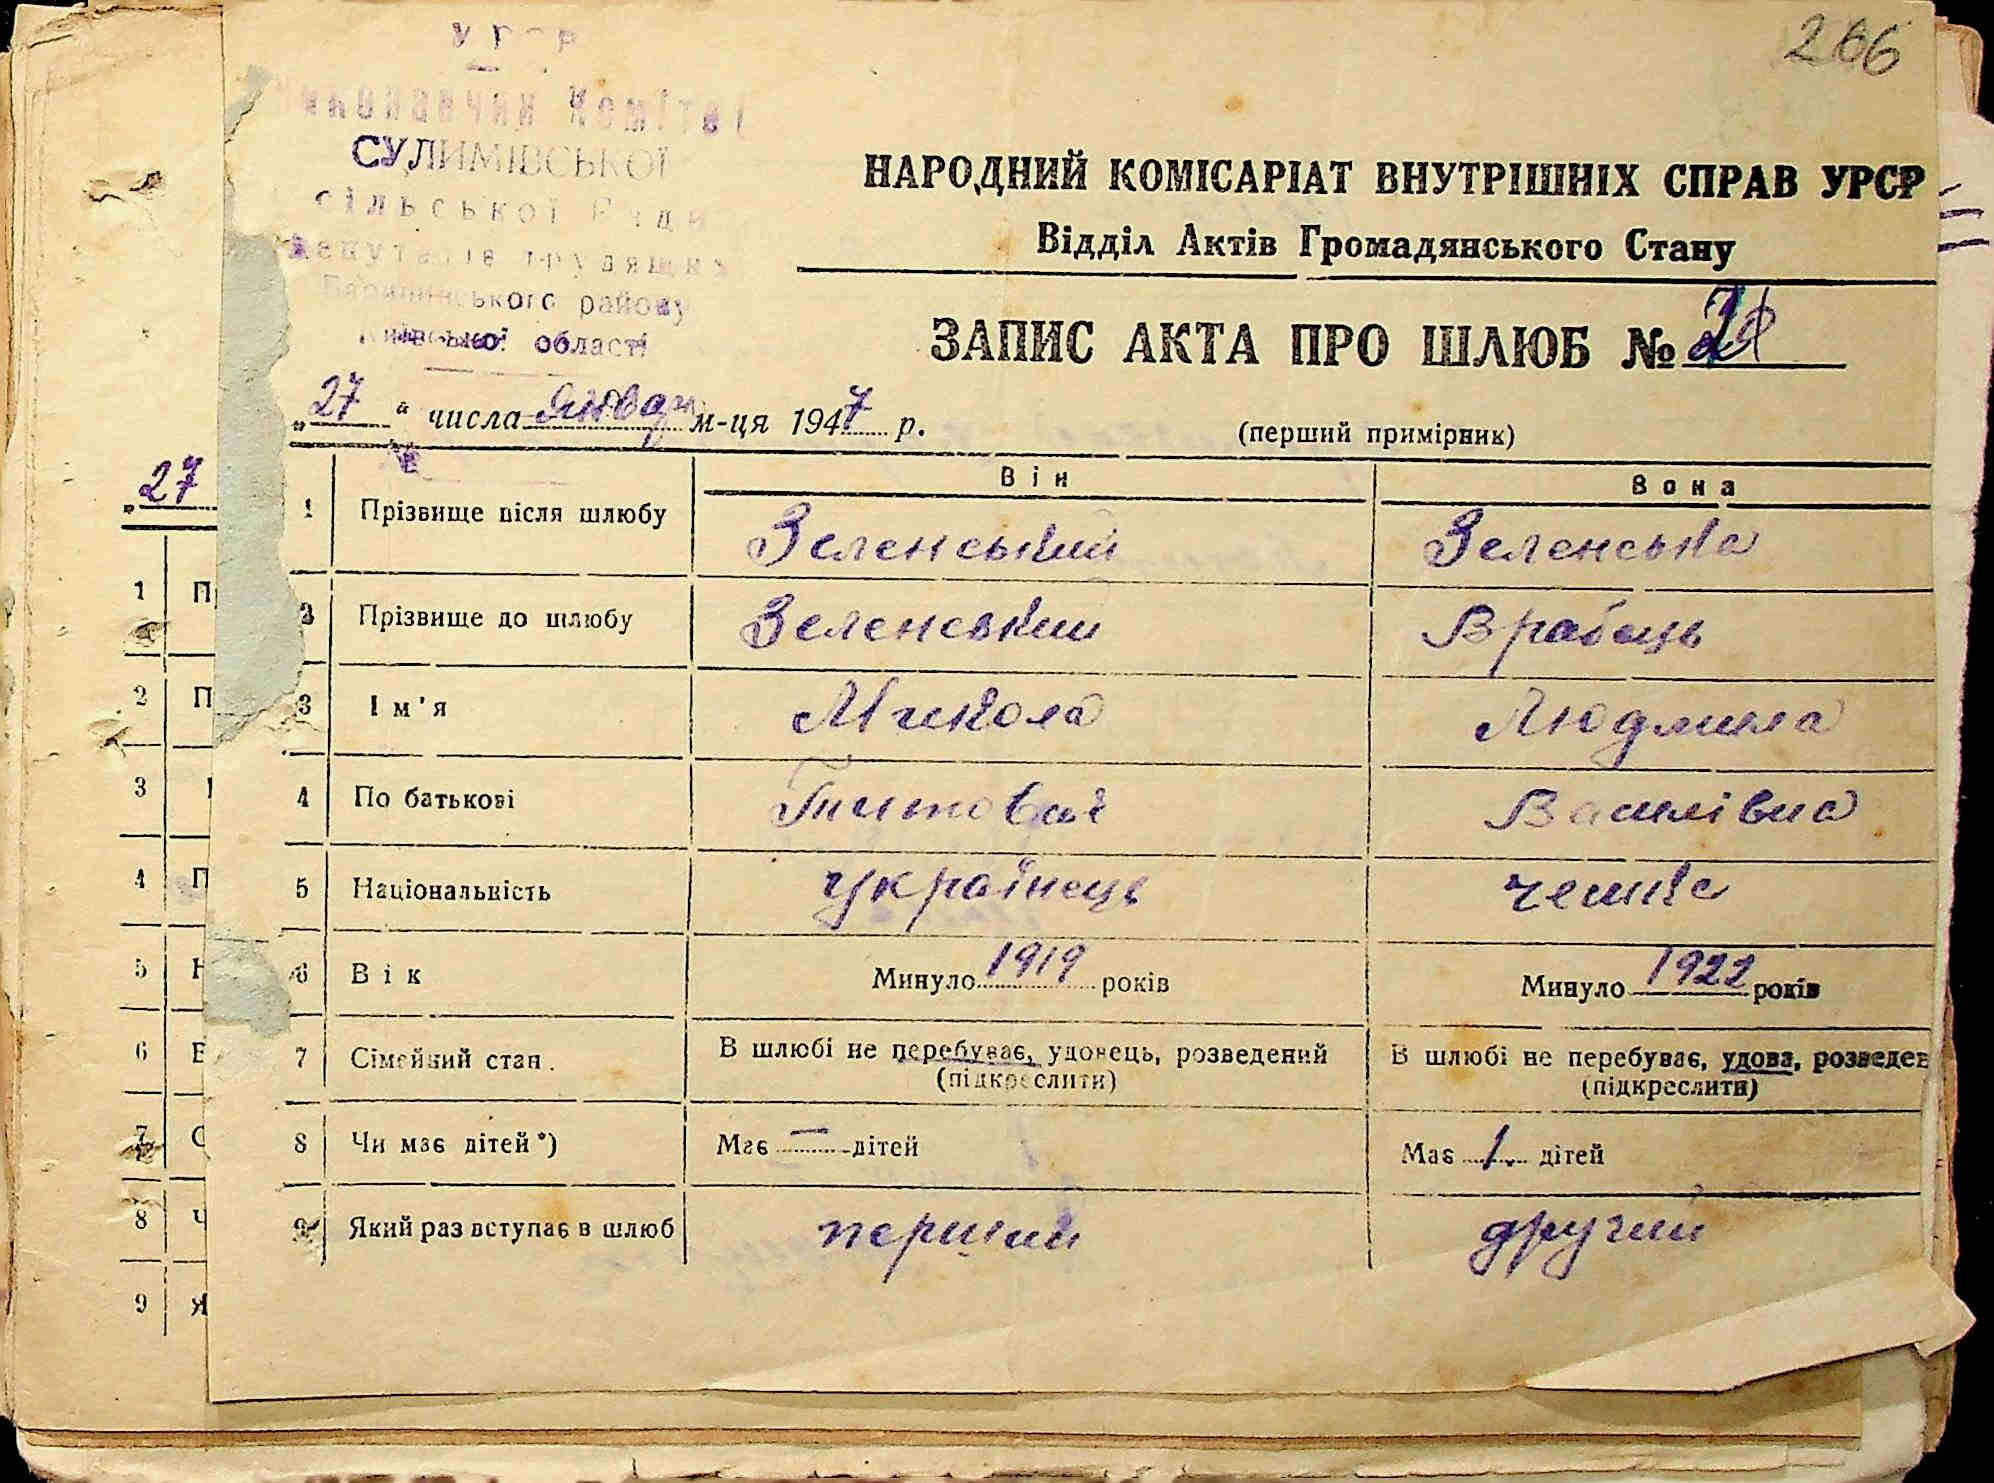 266
УРСР
Виконавчий Комітет
СУЛИМІВСЬКОЇ
сільської Ради
депутатів трудящих
Баришівського району
Київської області
НАРОДНИЙ КОМІСАРІАТ ВНУТРІШНІХ СПРАВ УРСР
Відділ Актів Громадянського Стану
ЗАПИС АКТА ПРО ШЛЮБ №
„27“ числа Января м-ця 1947 р.
(перший примірник)
Він Вона
1 Прізвище після шлюбу Зеленський Зеленська
2 Прізвище до шлюбу Зеленський Врабець
3 Ім'я Микола Людмила
4 По батькові Титович Василівна
5 Національність українець чешка
6 Вік Минуло 1919 років Минуло 1922 років
7 Сімейний стан. В шлюбі не перебуває, удовець, розведений В шлюбі не перебуває, удова, розведен
(підкреслити) (підкреслити)
8 Чи має дітей*) Має — дітей Має 1. дітей
9 Який раз вступає в шлюб перший другий
„27
1 П
2 П
3 І
4 П
5 Н
6 В
7 С
8 Ч
9 Я